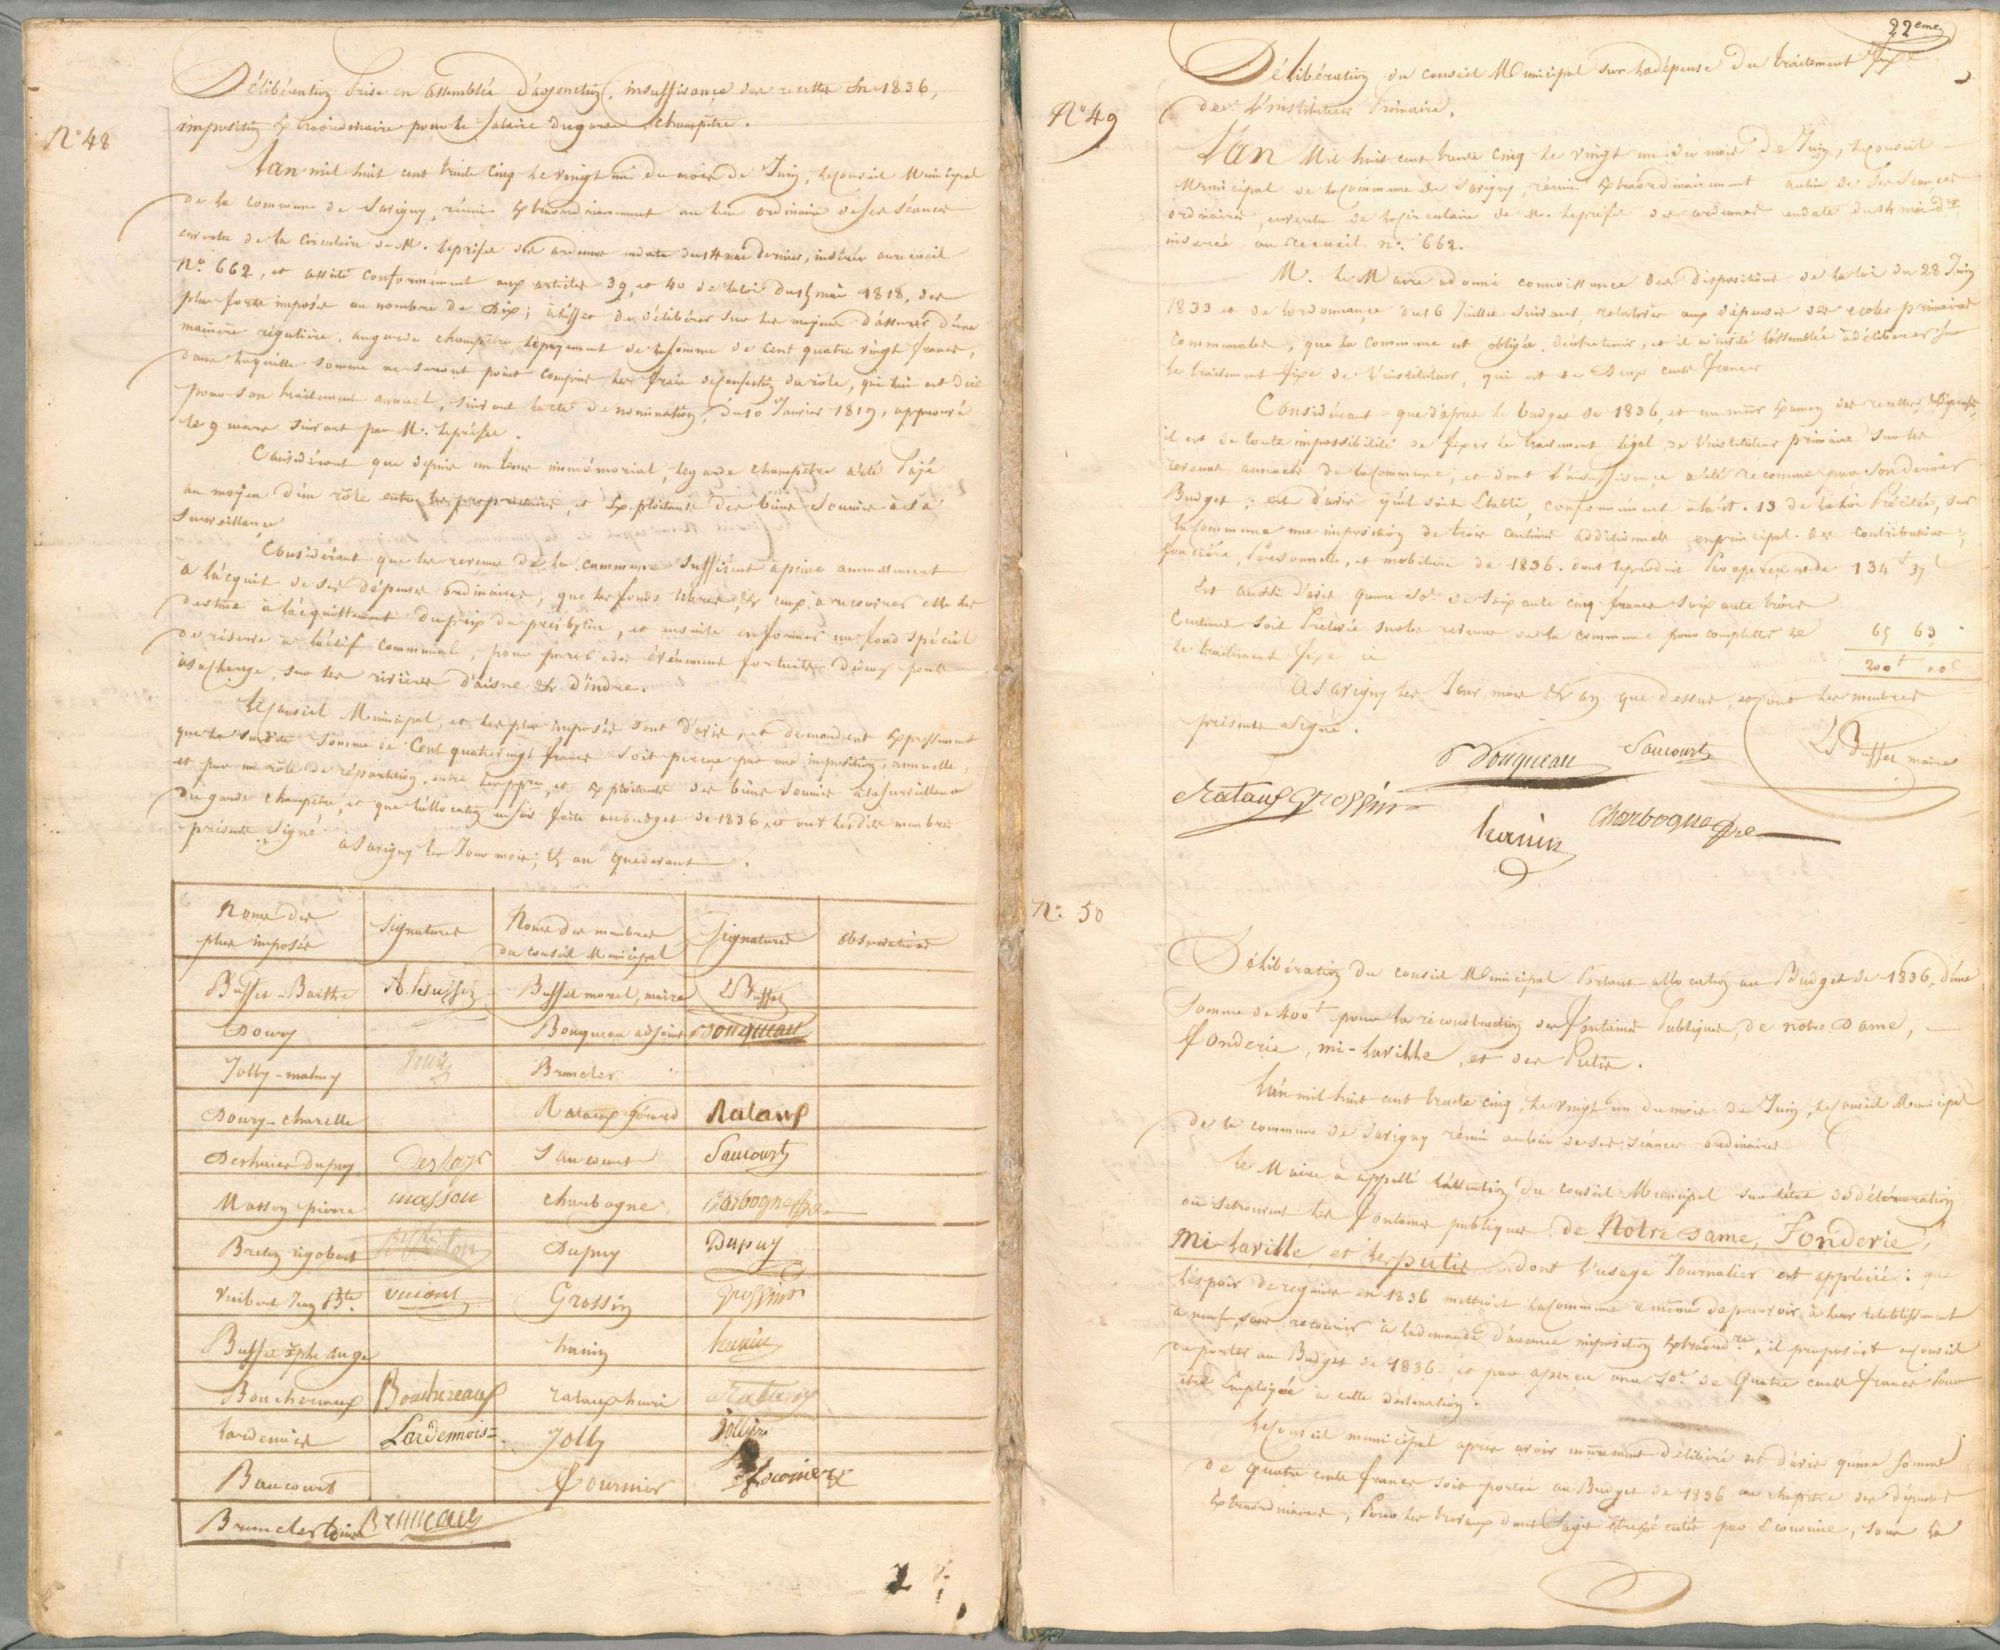 Délibération Prise en assemblée d'adjonction, insuffisance des recettes En 1836,
imposition Extraordinaire pour le salaire du garde champêtre.
N° 48
L'an mil huit cent trente Cinq le vingt un du mois de Juin, le Conseil Municipal
de la Commune de Savigny, réuni Extraordinairement au lieu ordinaire de ses séances
en vertu de la Circulaire de M. le préfet des ardennes en date du 14 mai dernier, insérée au recueil
N° 662, et assisté Conformément aux articles 39, et 40 de la loi du 15 mai 1818, des
plus forts imposés au nombre de Dix; à l'effet de délibérer sur les moyens d'assurer d'une
manière régulière, au garde champêtre le payement de la somme de Cent quatre vingt francs,
dans laquelle somme ne seront point compris les frais de confection du rôle, qui lui est due
pour son traitement annuel, suivant l'acte de nomination, du 10 Janvier 1819, approuvé
le 9 mars suivant par M. le préfet.
Considérant que depuis un tems immémorial, le garde champêtre a été Payé
au moyen d'un rôle entre les propriétaires, et Exploitants des biens soumis à sa
surveillance
Considérant que les revenus de la commune suffisent à peine annuellement
à l'acquit de ses dépenses ordinaires; que les fonds libres, Et ceux à recouvrer elle les
destine à l'acquittement du prix du presbytère, et ensuite en former un fond spécial
de réserve à l'actif communal, pour parer à des événements fortuits des deux ponts
à sa charge, sur les rivières d'aisne Et d'indre.
Le Conseil Municipal, et les plus imposés sont d'avis, et demandent Expressément
que la susdite somme de Cent quatre vingt francs soit perçue par une imposition annuelle,
et par un rôle de répartition, entre les ppres, et Exploitants des biens soumis à la surveillance
du garde champêtre, et que l'allocation en soit faite au budget de 1836, et ont lesdits membres
présents signé
à Savigny les Jour mois, Et an que devant.
Noms des plus imposés | Signatures | Noms des membres du conseil Municipal | Signatures | Observations
Buffet-Barthe | | Buffet morel, maire | LS Buffet
Doury | | Bouqueau adjoint | Bouqueau
Jolly-malmy | | Bruneler
Doury-charelle | | Rataux Gérard | Rataux
Deshuies Dupuy | | Saucourt | Saucourt
Masson pierre | masson | Charbogne | Charbogne
Breton rigobert | | Dupuy | Dupuy
| | Grossin | Grossin
| | hanin | hanin
Boucheraux | Boucheraux | rataux henri | Rataux
Lardenois | Lardennois | Jolly | Jolly
Baucourt | | Fournier
22eme
Délibération du conseil Municipal sur la dépense du traitement fixe
de l'instituteur Primaire.
N° 49
L'an Mil huit cent trente Cinq le vingt un du mois de Juin, le Conseil
Municipal de la Commune de Savigny, réuni Extraordinairement au lieu de ses séances
ordinaires, en vertu de la Circulaire de M. le préfet des ardennes en date du 14 mai dr
insérée au recueil n° 662.
M. le Maire a donné connaissance des dispositions de la loi du 28 Juin
1833 et de l'ordonnance du 16 Juillet suivant, relatives aux dépenses des ecoles primaires
Communales, que la commune est obligée d'entretenir, et il a invité l'assemblée à délibérer sur
le traitement fixe de l'instituteur, qui est de Deux cents francs
Considérant que d'après le budget de 1836, et un mûr Examen des recettes, Et dépenses,
il est de toute impossibilité de fixer le traitement légal de l'instituteur primaire sur les
revenus annuels de la Commune, et dont l'insuffisance a été reconnue par son dernier
Budget; est d'avis qu'il soit Etabli, conformément à l'art. 13 de la loi Précitée, sur
la commune une imposition de trois centimes additionnels en principal des contributions
foncière, Personnelle, et mobilière de 1836. dont le produit Par aperçu est de 134f 37c
Est aussi d'avis qu'une so. de soixante cinq francs soixante trois
Centimes soit Prélevée sur les revenus de la commune pour compléter
le traitement fixe ci 65 63
200f 00c
A Savigny les Jour, mois Et an que dessus, et ont les membres
présents signé.
Bouqueau Saucourt LS Buffet maire
Rataux Grossin
hanin Charbogne
N° 50
Délibération du conseil Municipal Portant allocation au Budget de 1836, d'une
somme de 400f pour la reconstruction des fontaines Publiques, de notre Dame,
fonderie, mi-laville, et des Putis.
L'an mil huit cent trente Cinq, le vingt un du mois de Juin, le Conseil Municipal
de la commune de Savigny réuni au lieu de ses séances ordinaires
Le Maire a appellé l'attention du conseil Municipal sur l'état de détérioration
où se trouvent les fontaines publiques de Notre Dame, Fonderie,
mi-laville, et les putis dont l'usage Journalier est apprécié: que
l'espoir de régime en 1836 mettroit la Commune à même de pourvoir à leur rétablissement
à neuf, sans recourir à la demande d'aucune imposition Extraordre, il proposoit au Conseil
de porter au Budget de 1836, et par aperçu une so. de Quatre cents francs Pour
être Employée à cette destination.
Le Conseil municipal après avoir mûrement délibéré est d'avis qu'une somme
de Quatre cents francs soit portée au Budget de 1836 au chapitre des dépenses
Extraordinaires, Pour les travaux dont s'agit être exécutés par Economie, sous la